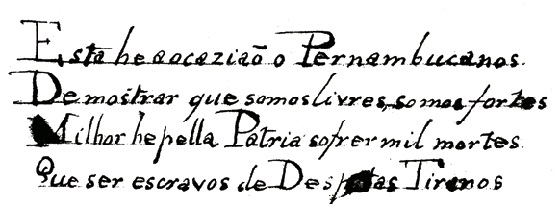 Esta he aocaziaõ o Pernambucanos.
De mostrar que somos livres, somos fortes
Milhor he pella Patria sofrer mil mortes
Que ser escravos de Despotas Tiranos